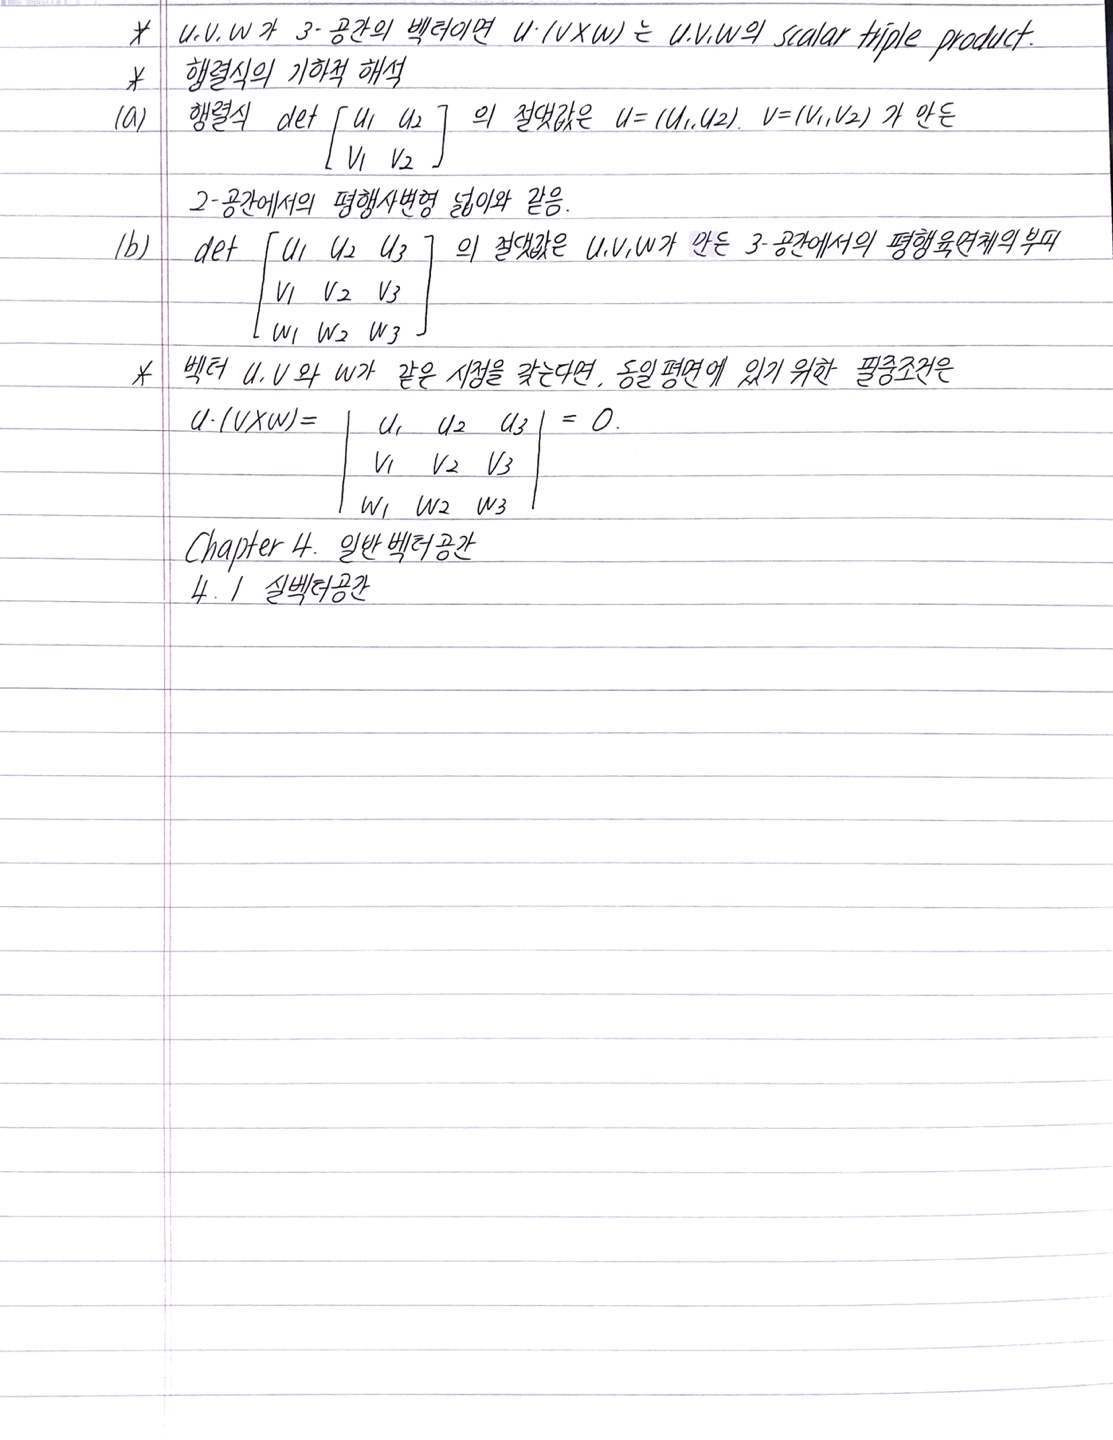 * u.v.w가 3-공간의 벡터이면 u·(v×w)는 u.v.w의 scalar triple product.
* 행렬식의 기하적 해석
(a) 행렬식 det [ u1 u2 ] 의 절댓값은 u=(u1.u2). v=(v1,v2)가 만든
[ v1 v2 ]
2-공간에서의 평행사변형 넓이와 같음.
(b) det [ u1 u2 u3 ] 의 절댓값은 u.v,w가 만든 3-공간에서의 평행육면체의 부피
v1 v2 v3
w1 w2 w3
* 벡터 u.v와 w가 같은 시점을 갖는다면, 동일평면에 있기 위한 필충조건은
u·(v×w)= | u1 u2 u3 | = 0.
v1 v2 v3
w1 w2 w3
Chapter 4. 일반벡터공간
4.1 실벡터공간